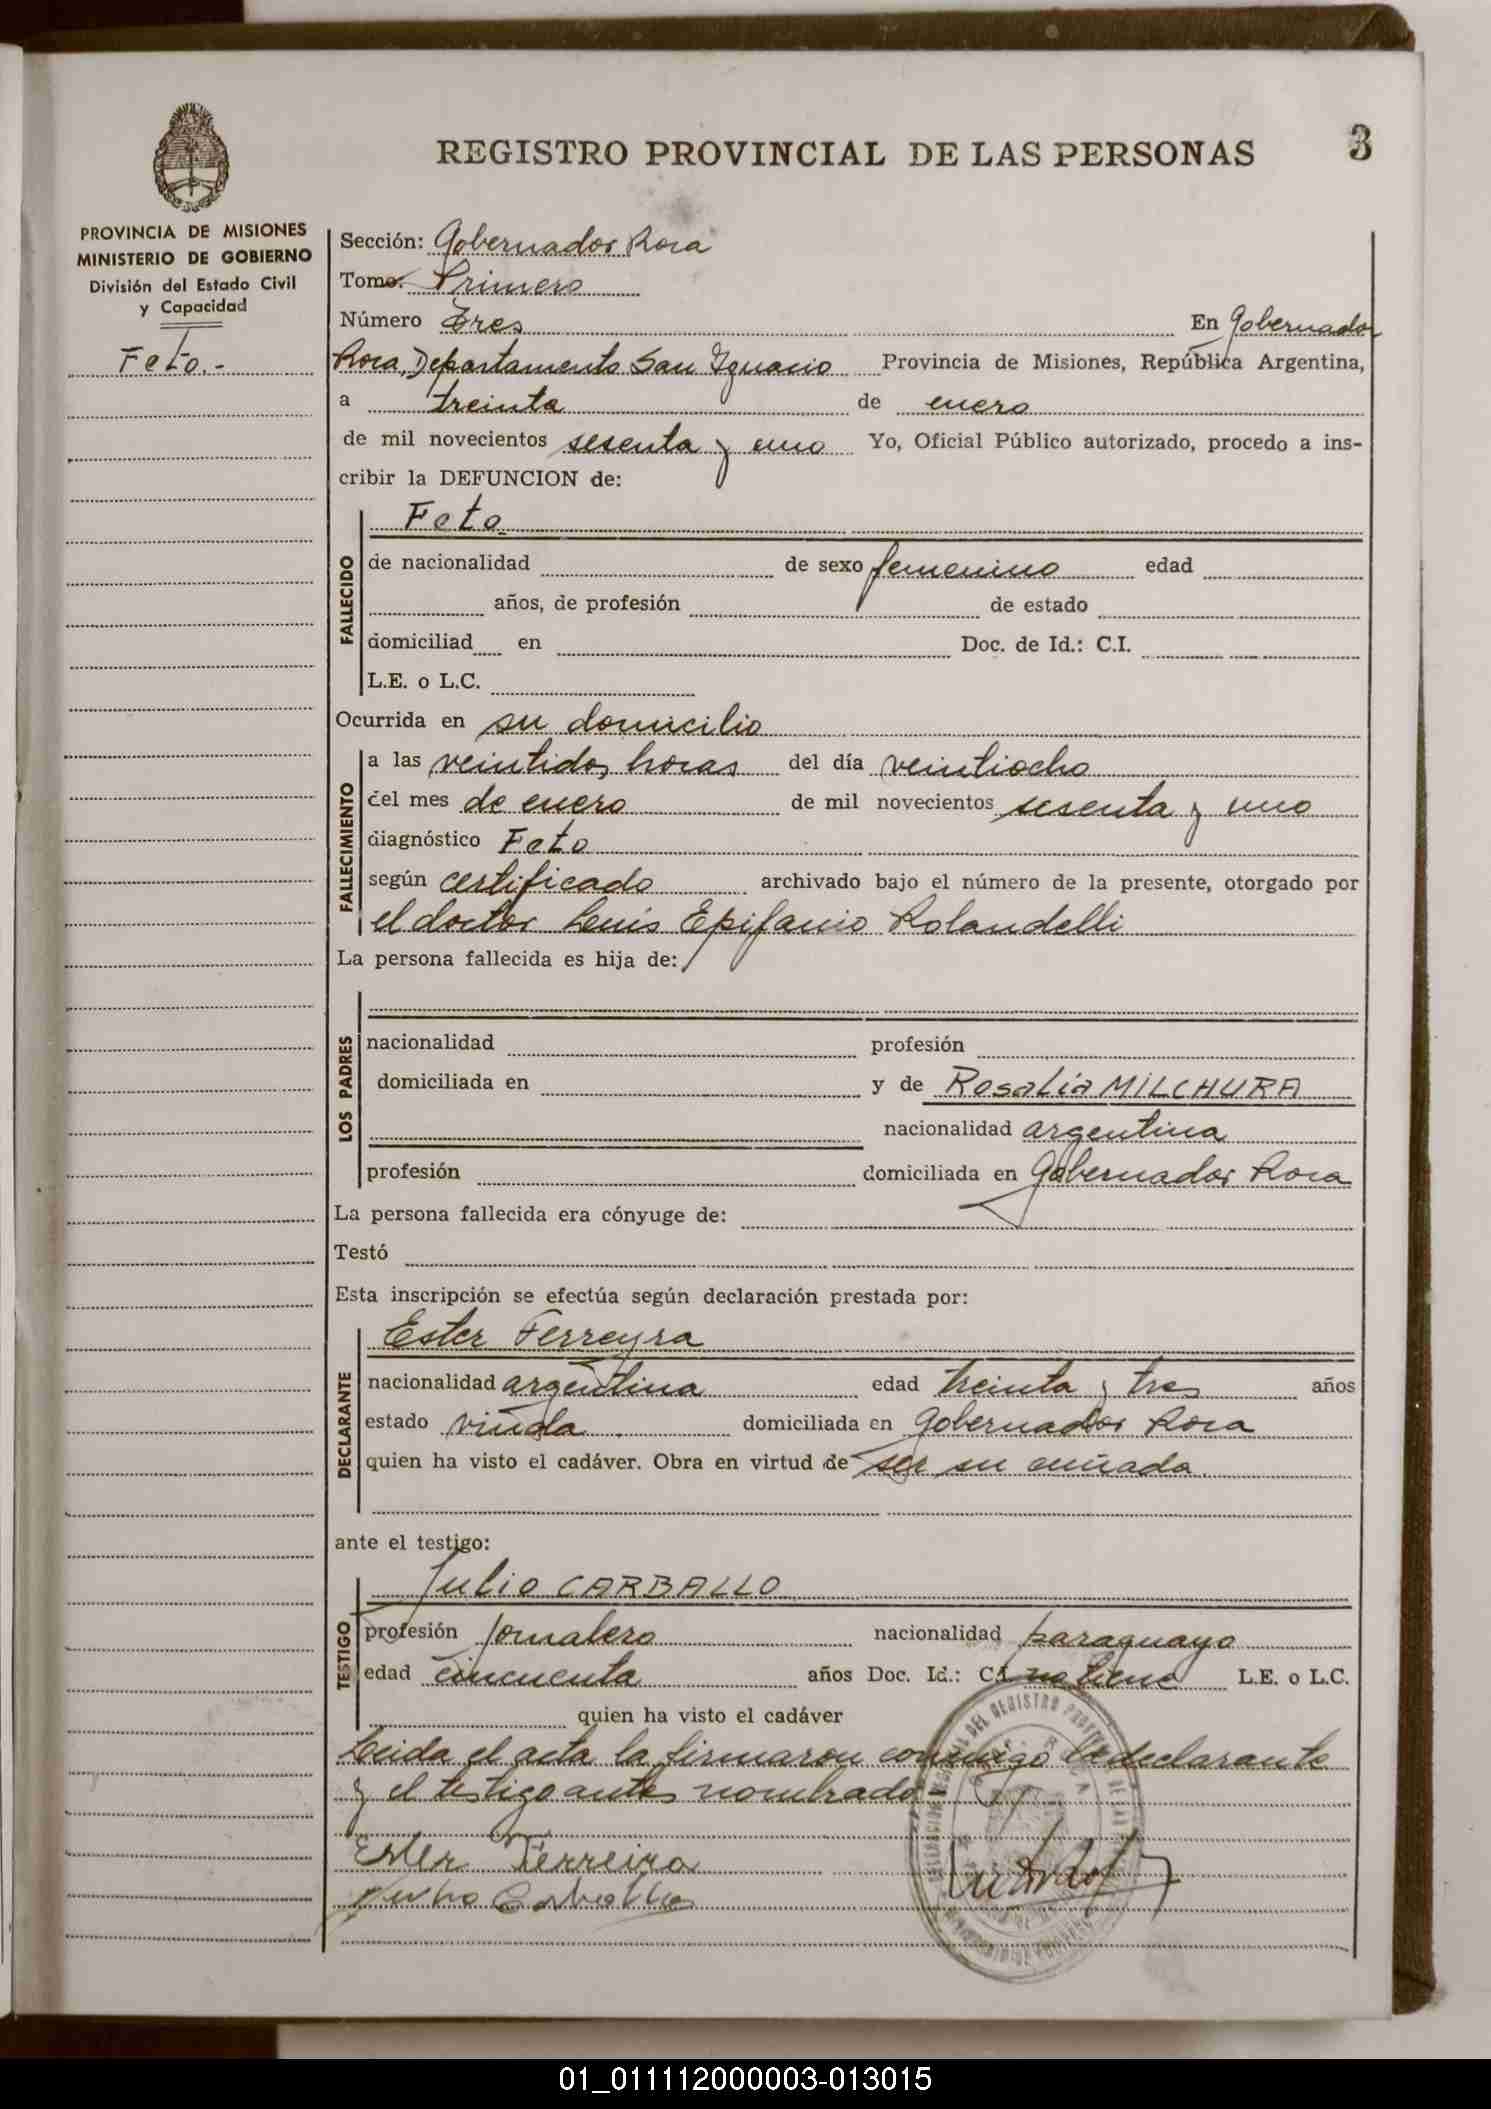 REGISTRO PROVINCIAL DE LAS PERSONAS 3
PROVINCIA DE MISIONES
MINISTERIO DE GOBIERNO
División del Estado Civil
y Capacidad
Feto.-
Sección: Gobernador Roca
Tomo: Primero
Número Tres En Gobernador
Roca, Departamento San Ignacio Provincia de Misiones, República Argentina,
a treinta de enero
de mil novecientos sesenta y uno Yo, Oficial Público autorizado, procedo a ins-
cribir la DEFUNCION de:
Feto
FALLECIDO
de nacionalidad de sexo femenino edad
años, de profesión de estado
domiciliad en Doc. de Id.: C.I.
L.E. o L.C.
Ocurrida en su domicilio
FALLECIMIENTO
a las veintidos horas del día veintiocho
del mes de enero de mil novecientos sesenta y uno
diagnóstico Feto
según certificado archivado bajo el número de la presente, otorgado por
el doctor Luis Epifanio Rolandelli
La persona fallecida es hija de:
LOS PADRES
nacionalidad profesión
domiciliada en y de Rosalia MILCHURA
nacionalidad argentina
profesión domiciliada en Gobernador Roca
La persona fallecida era cónyuge de:
Testó
Esta inscripción se efectúa según declaración prestada por:
Ester Ferreyra
DECLARANTE
nacionalidad argentina edad treinta y tres años
estado viuda domiciliada en Gobernador Roca
quien ha visto el cadáver. Obra en virtud de ser su cuñada.
ante el testigo:
Julio CARBALLO
TESTIGO
profesión jornalero nacionalidad paraguayo
edad cincuenta años Doc. Id.: C.I. no tiene L.E. o L.C.
quien ha visto el cadáver
Leida el acta la firmaron conmigo la declarante
y el testigo antes nombrado-
Ester Ferreira
Julio Carballo
01_011112000003-013015